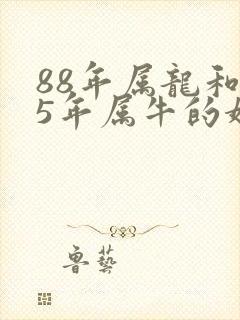 88年属龍和
5年属牛的
鲁藝